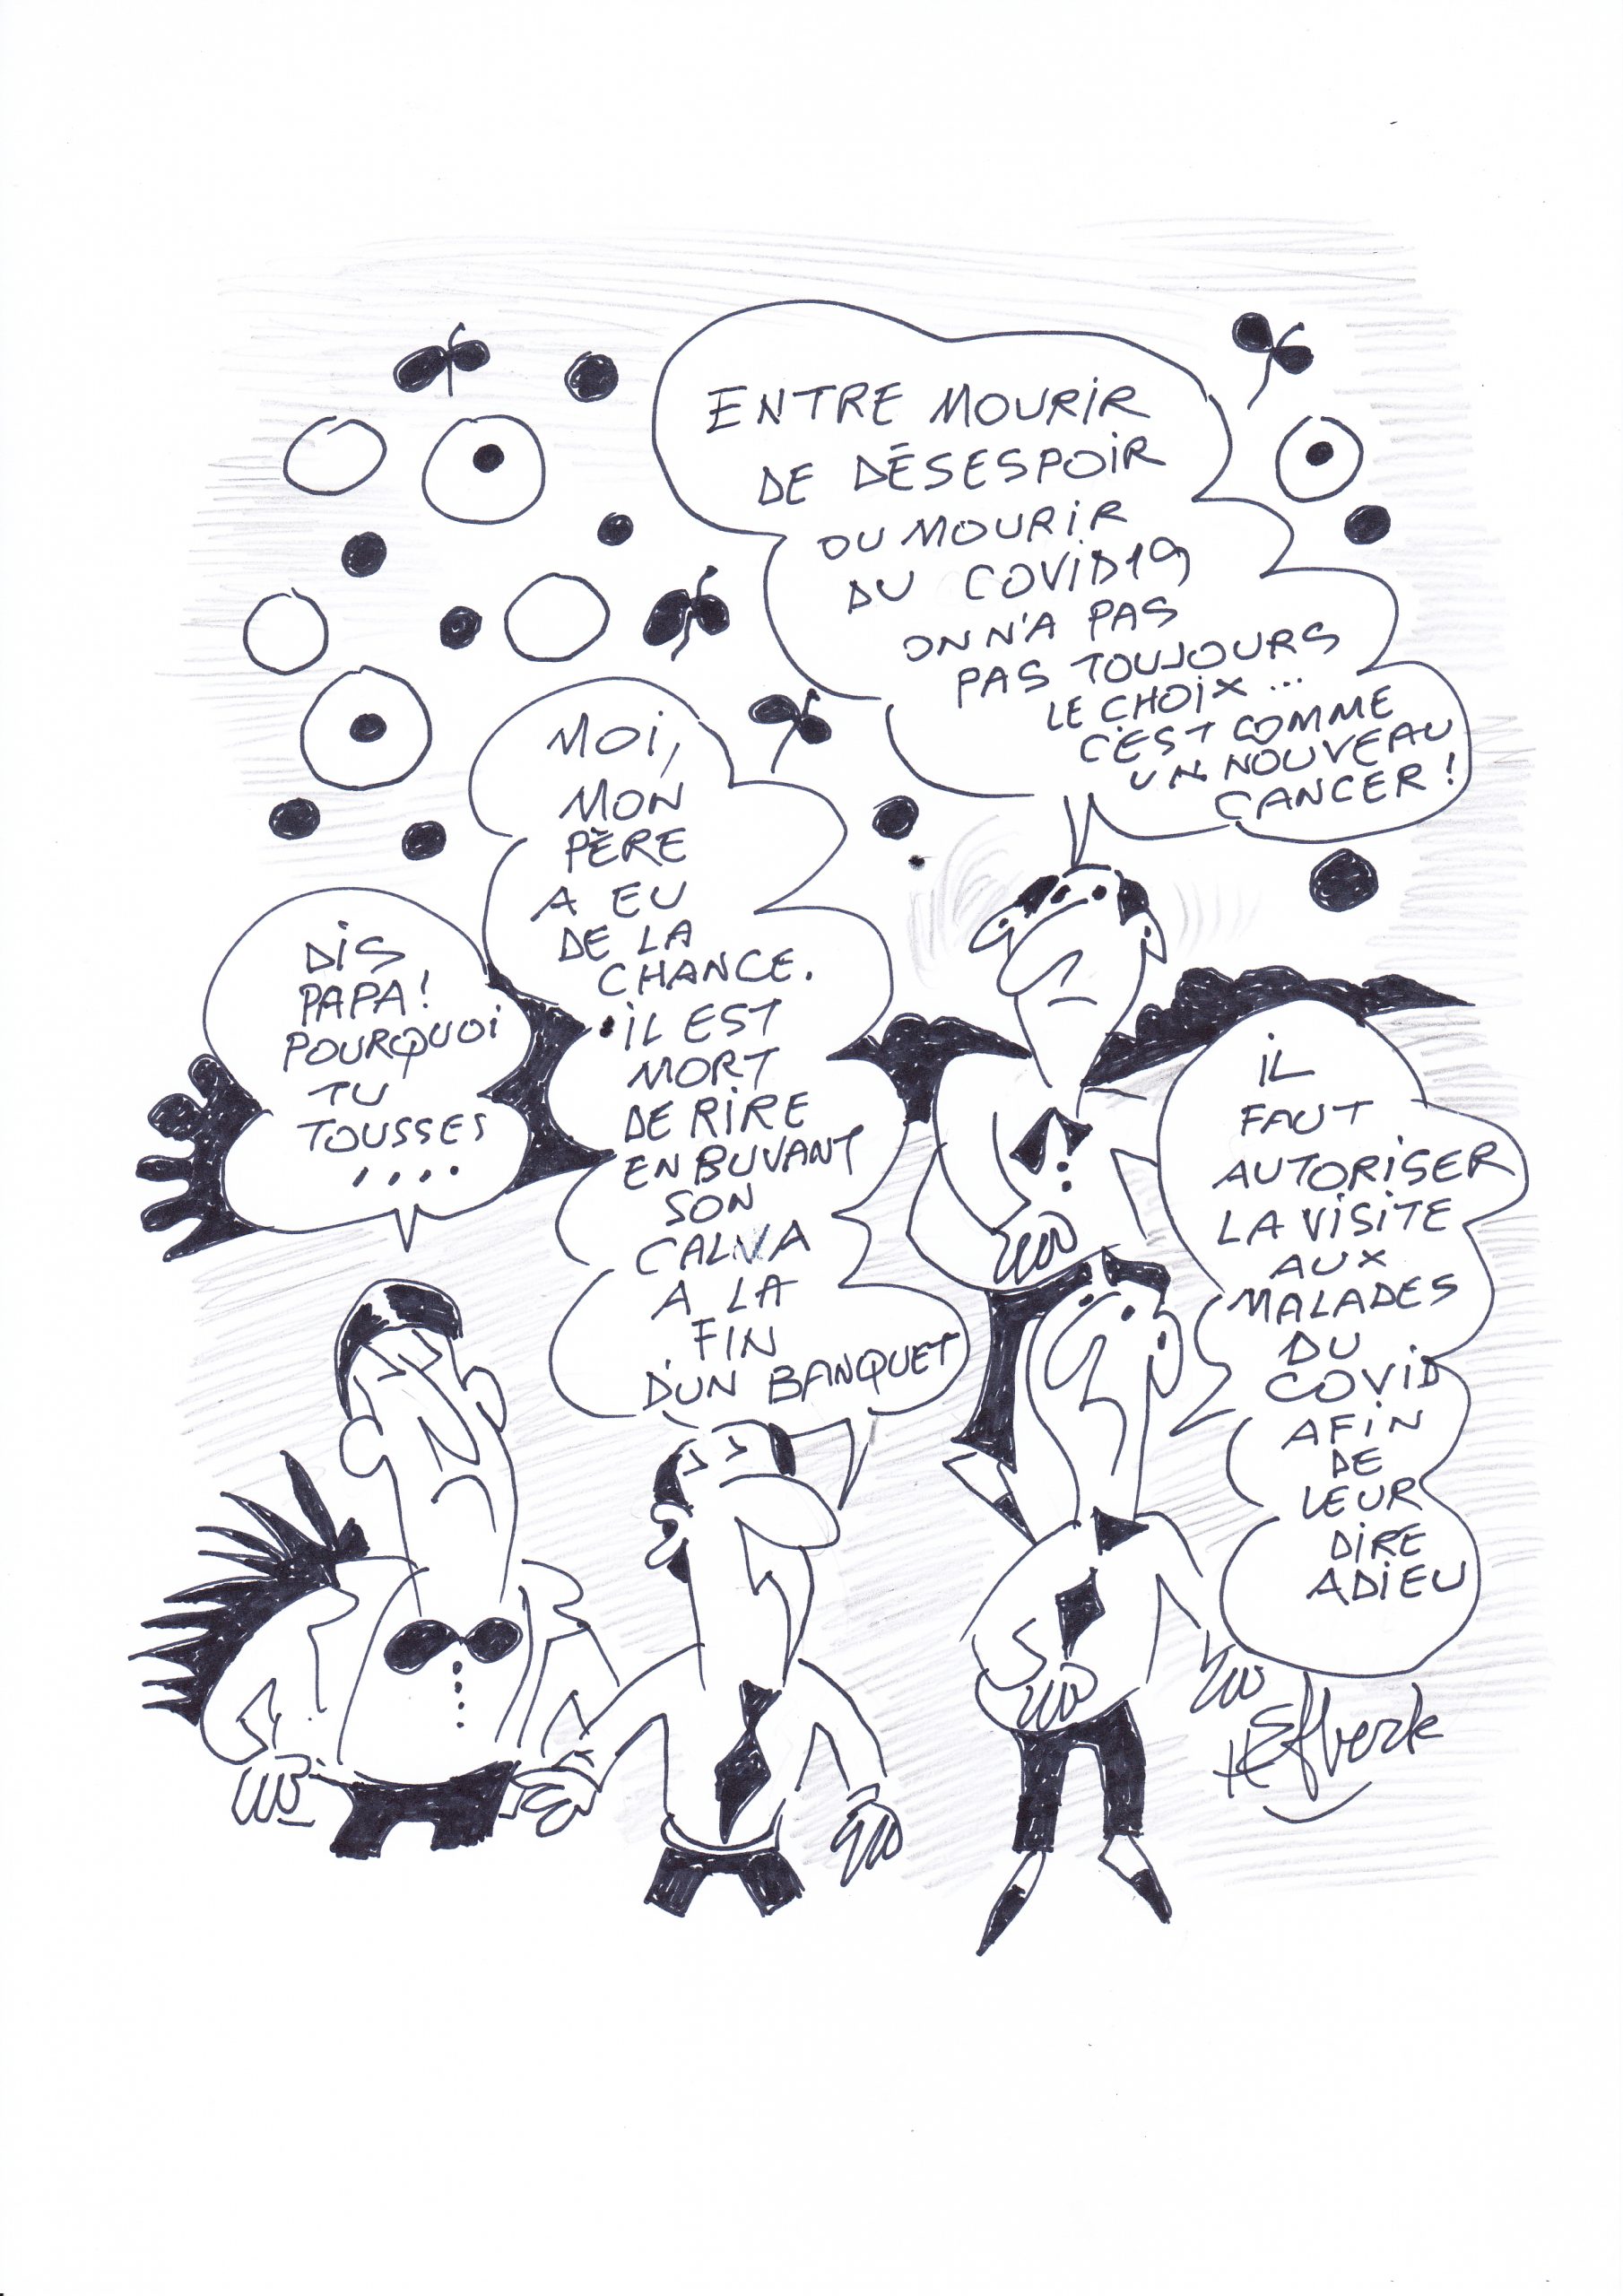 ENTRE MOURIR
DE DÉSESPOIR
OU MOURIR
DU COVID19
ON N'A PAS
PAS TOUJOURS
LE CHOIX ...
C'EST COMME
UN NOUVEAU
CANCER !
MOI,
MON
PÈRE
A EU
DE LA
CHANCE.
IL EST
MORT
DE RIRE
EN BUVANT
SON
CALVA
A LA
FIN
D'UN BANQUET
DIS
PAPA !
POURQUOI
TU
TOUSSES
....
IL
FAUT
AUTORISER
LA VISITE
AUX
MALADES
DU
COVID
AFIN
DE
LEUR
DIRE
ADIEU